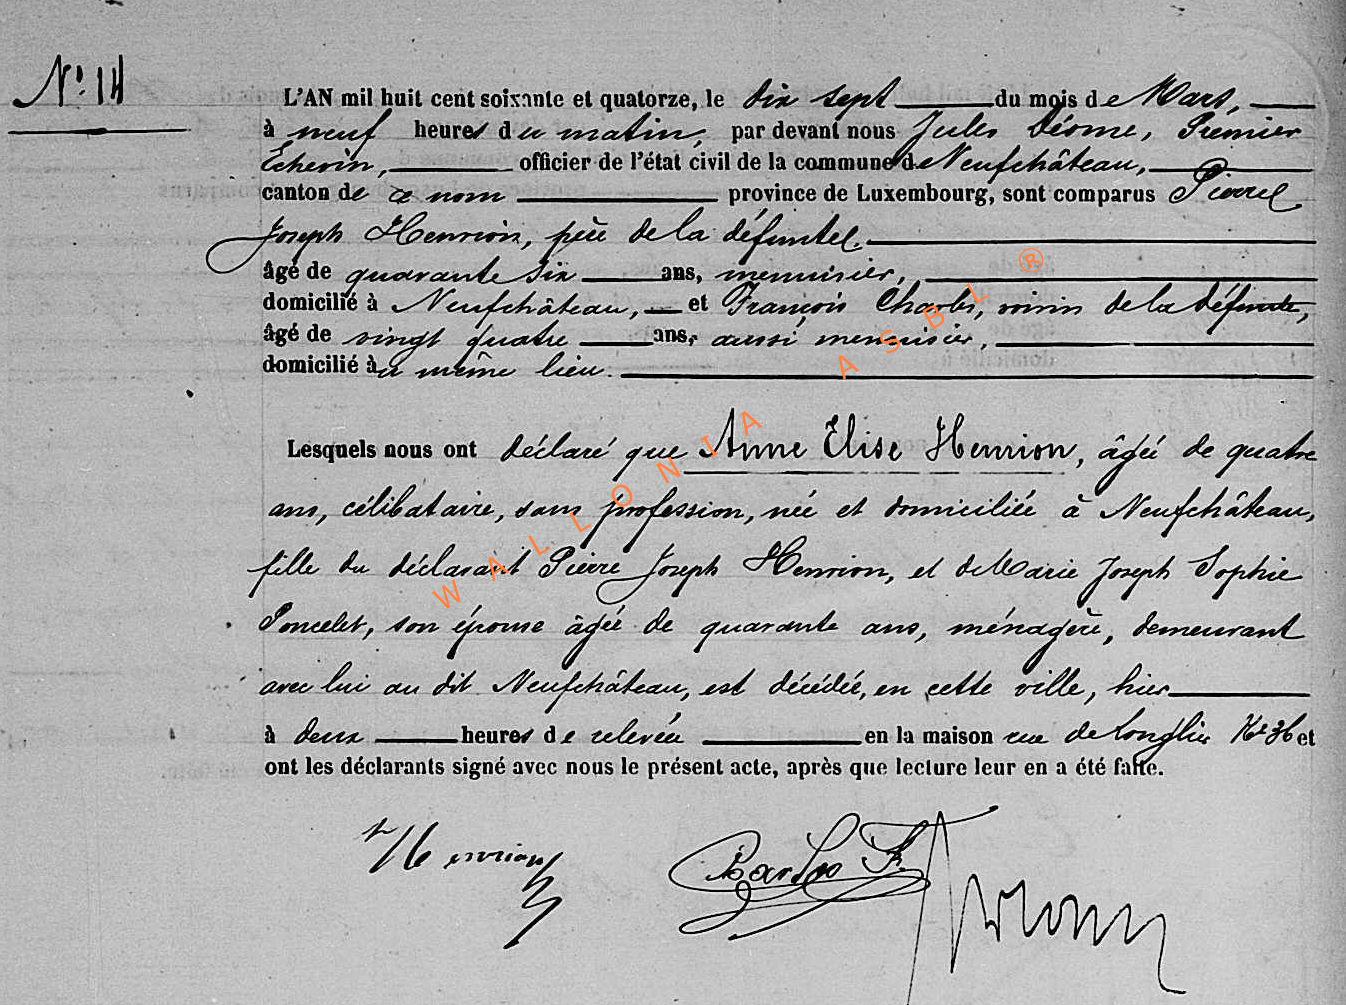 N° 14
L'AN mil huit cent soixante et quatorze, le dix sept du mois de Mars,
à neuf heures du matin, par devant nous Jules Déome, Premier
Echevin, officier de l'état civil de la commune de Neufchâteau,
canton de ce nom province de Luxembourg, sont comparus Pierre
Joseph Henrion, père de la défunte
âgé de quarante six ans, menuisier,
domicilié à Neufchâteau, et François Charles, voisin de la défunte,
âgé de vingt quatre ans, aussi menuisier,
domicilié au même lieu.
Lesquels nous ont déclaré que Anne Elise Henrion, âgée de quatre
ans, célibataire, sans profession, née et domiciliée à Neufchâteau,
fille du déclarant Pierre Joseph Henrion, et de Marie Joseph Sophie
Poncelet, son épouse âgée de quarante ans, ménagère, demeurant
avec lui au dit Neufchâteau, est décédée, en cette ville, hier
à deux heures de relevée en la maison rue de Longlier N° 36 et
ont les déclarants signé avec nous le présent acte, après que lecture leur en a été faite.
Henrion
WALLONIA ASBL ®